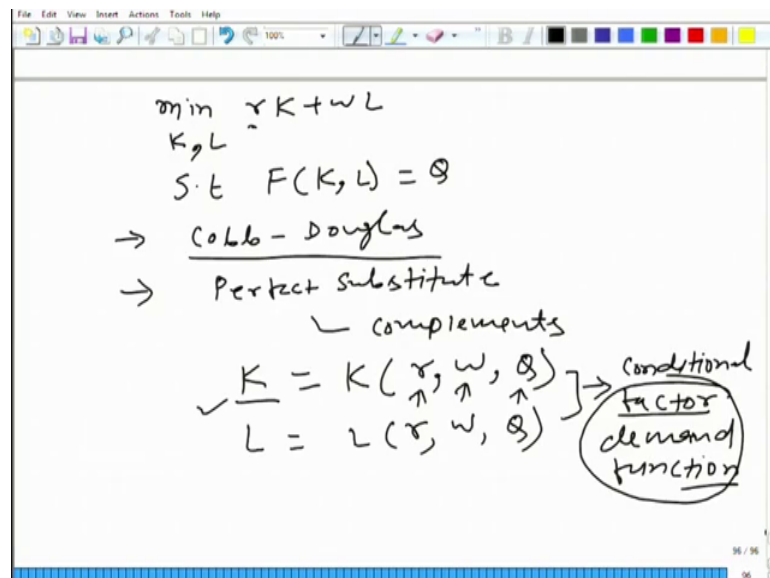 File Edit View Insert Actions Tools Help
100%
min rK + wL
K, L
S.t F(K, L) = Q
→ Cobb-Douglas
→ Perfect substitute
complements
K = K(r, w, Q)
L = L(r, w, Q)
→ conditional
factor
demand
function
96 / 96
96